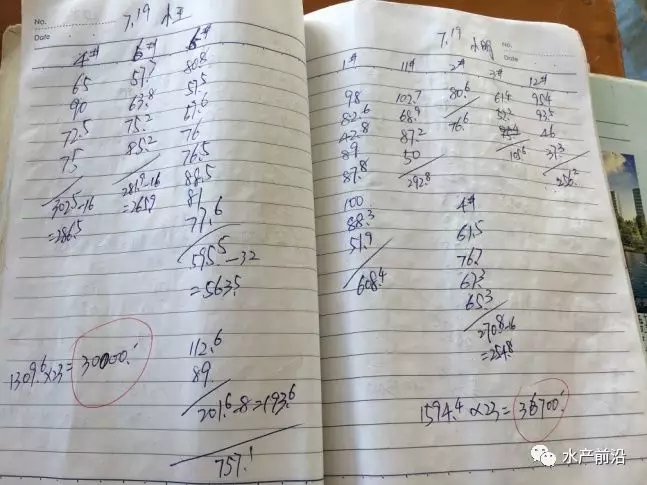 No.
Date
7.19 小王
4# 6#
65 57.7 80.8
90 63.8 57.5
72.5 75.2 67.6
75 85.2 76
302.5-16 281.9-16 76.5
=286.5 =265.9 88.5
77.6
595.5-32
=563.5
112.6
89
1309.6×23=30000.
201.6-8=193.6
757.1
7.19 小明
No.
Date
1# 11# 2# 3# 12#
98 102.7 80.6 61.4 95.4
82.6 68.9 76.6 52.2 93.5
42.8 87.2 46
89 50 105.6 37.3
87.8 292.8 256.2
100 4#
88.3 61.5
51.9 76.7
608.4 67.3
65.3
270.8-16
=254.8
1594.4×23=36700.
水产前沿